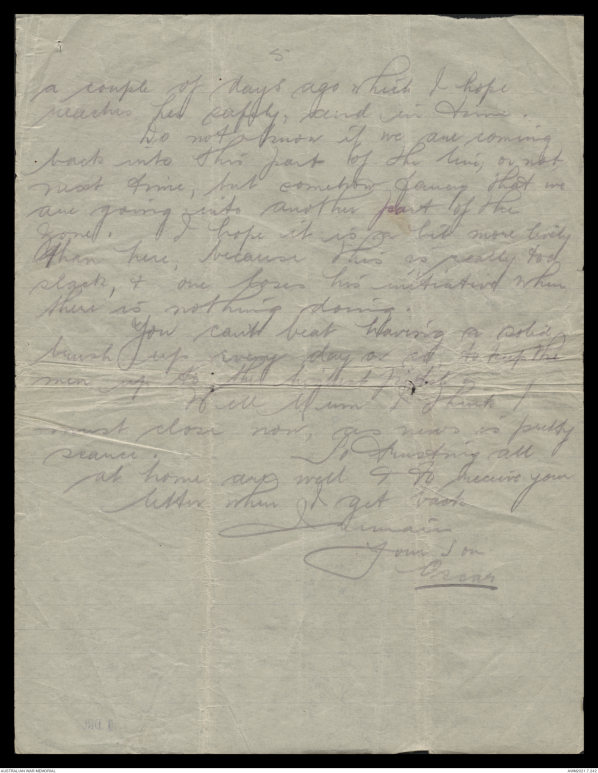 5
a couple of days ago which I hope
reaches her safely, and in time.
Do not know if we are coming
back into this part of the line, or not
next time, but somehow fancy that we
are going into another part of the
zone. I hope it is a bit more lively
than here, because this is really too
slack, & one loses his initiative when
there is nothing doing.
You can't beat having a solid
brush up every day or so to keep the
men up to the
Well Mum I think I
must close now, as news is pretty
scarce. So trusting all
at home are well & to receive your
letter when I get back
I remain
Your Son
Oscar
AUSTRALIAN WAR MEMORIAL
AWM2021.7.242